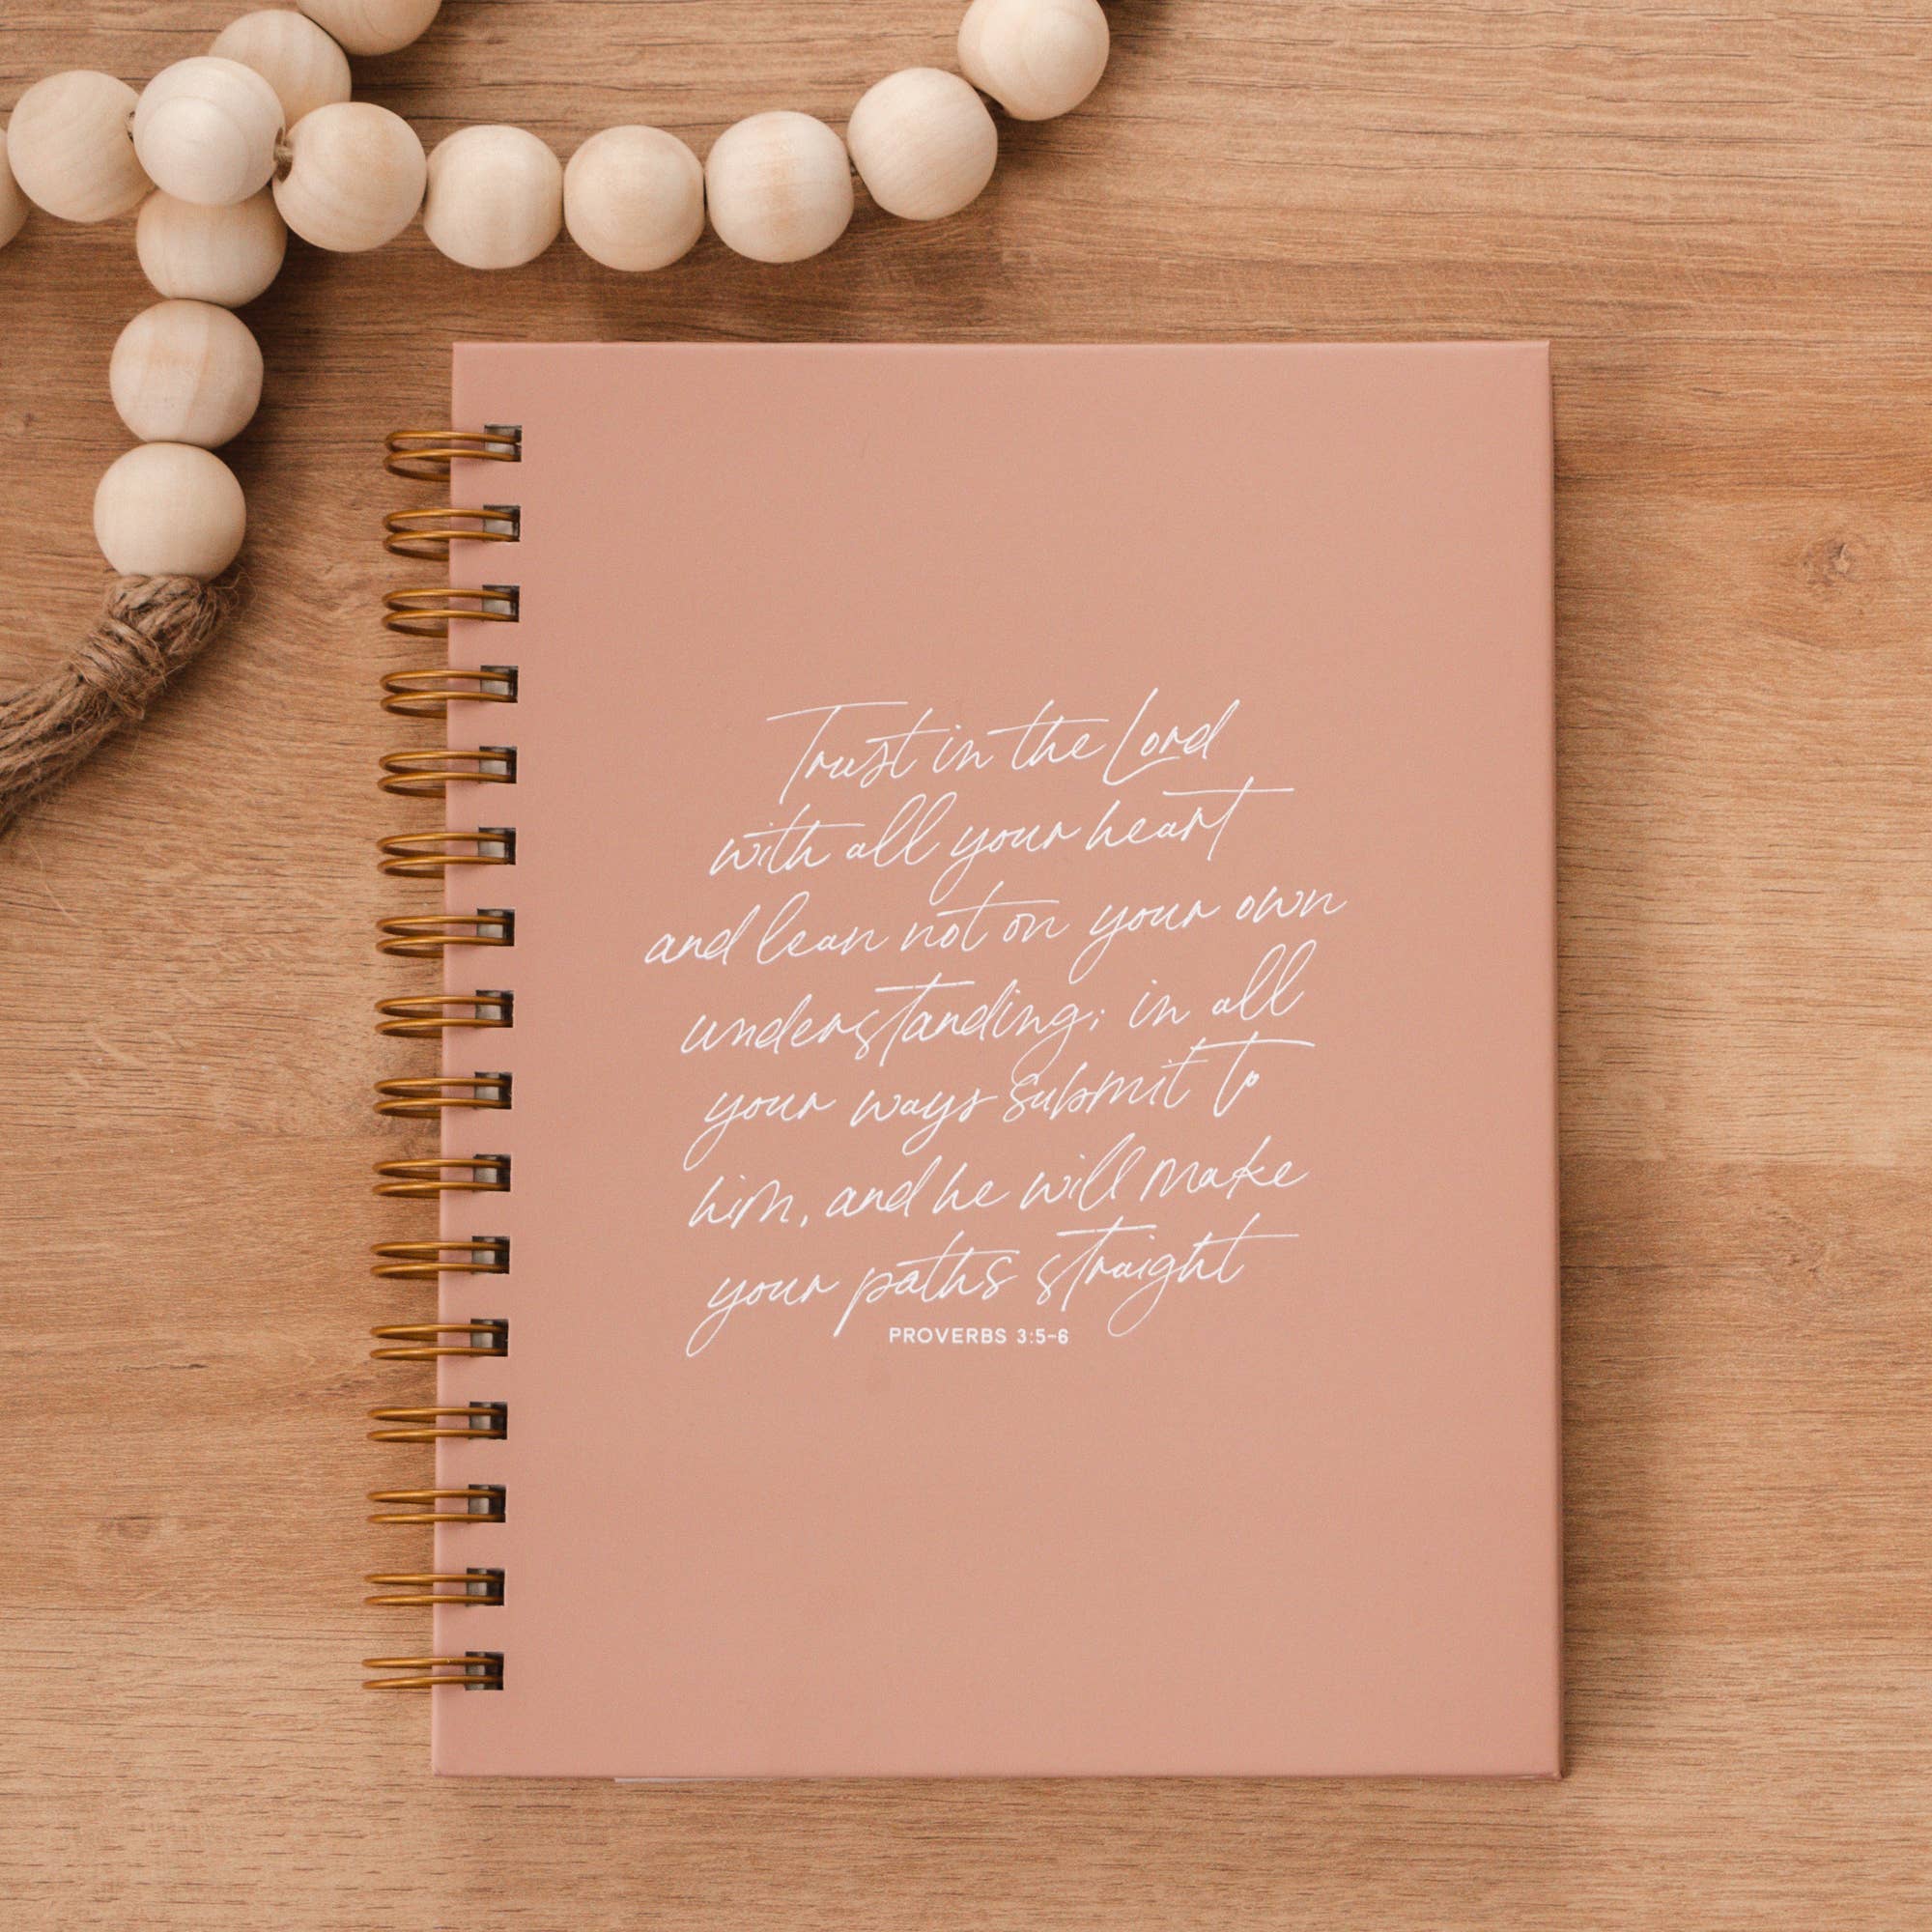 Trust in the Lord
with all your heart
and lean not on your own
understanding; in all
your ways submit to
him, and he will make
your paths straight
PROVERBS 3:5-6